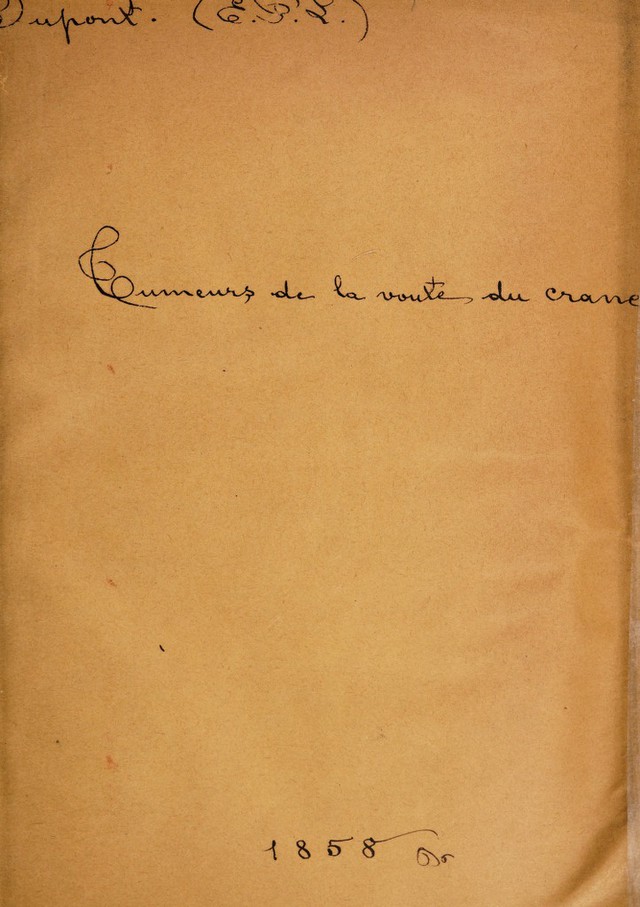 Dupont. (E. P. L.)
Tumeurs de la voute du crane
1858